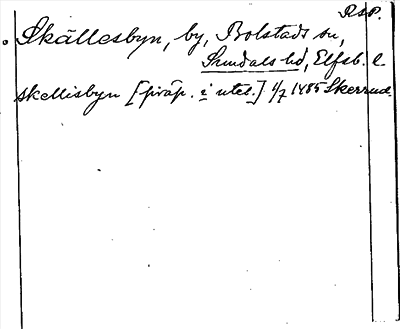 RSP.
Skällesbyn, by, Bolstads sn,
Sundals hd, Elfsb. l
skellisbyn [präp. i utel.] 4/7 1485 Skerrud.